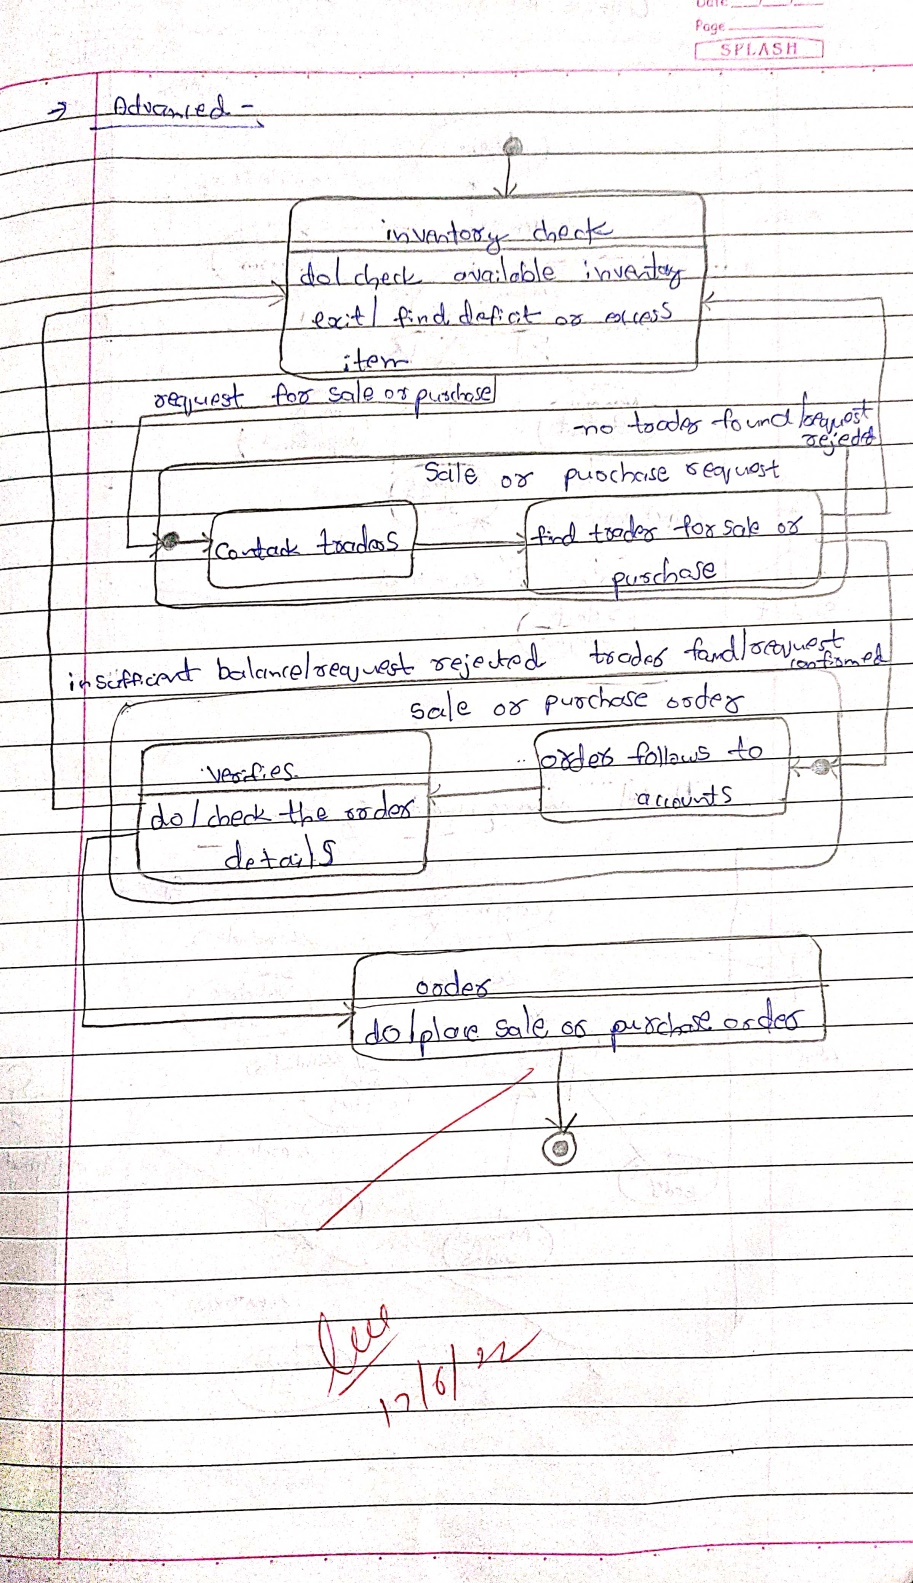 Date
Page
SPLASH
→ Advanced -
inventory check
do/check available inventory
exit/ find deficit or excess
item
request for sale or purchase
no trader found/request
rejected
Sale or purchase request
Contack traders
find trader for sale or
purchase
insufficent balance/request rejected
trader fand/request
confirmed
sale or purchase order
verifies
do/check the order
details
order follows to
accounts
order
do/place sale or purchase order
17/6/22